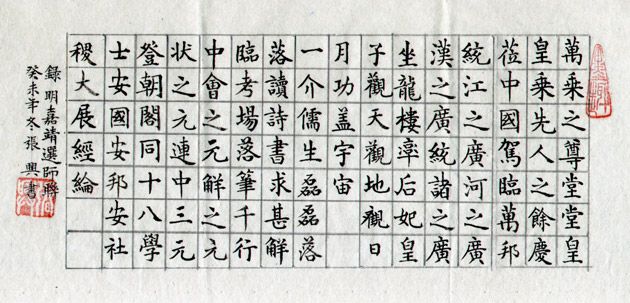 萬乘之尊堂堂皇
皇乘先人之餘慶
蒞中國駕臨萬邦
統江之廣河之廣
漢之廣統諸之廣
坐龍樓率后妃皇
子觀天觀地觀日
月功盖宇宙
一介儒生磊磊落
落讀詩書求甚解
臨考場落筆千行
中會之元解之元
狀之元連中三元
登朝閣同十八學
士安國安邦安社
稷大展經綸
錄明嘉靖選師聯
癸未年冬張興書